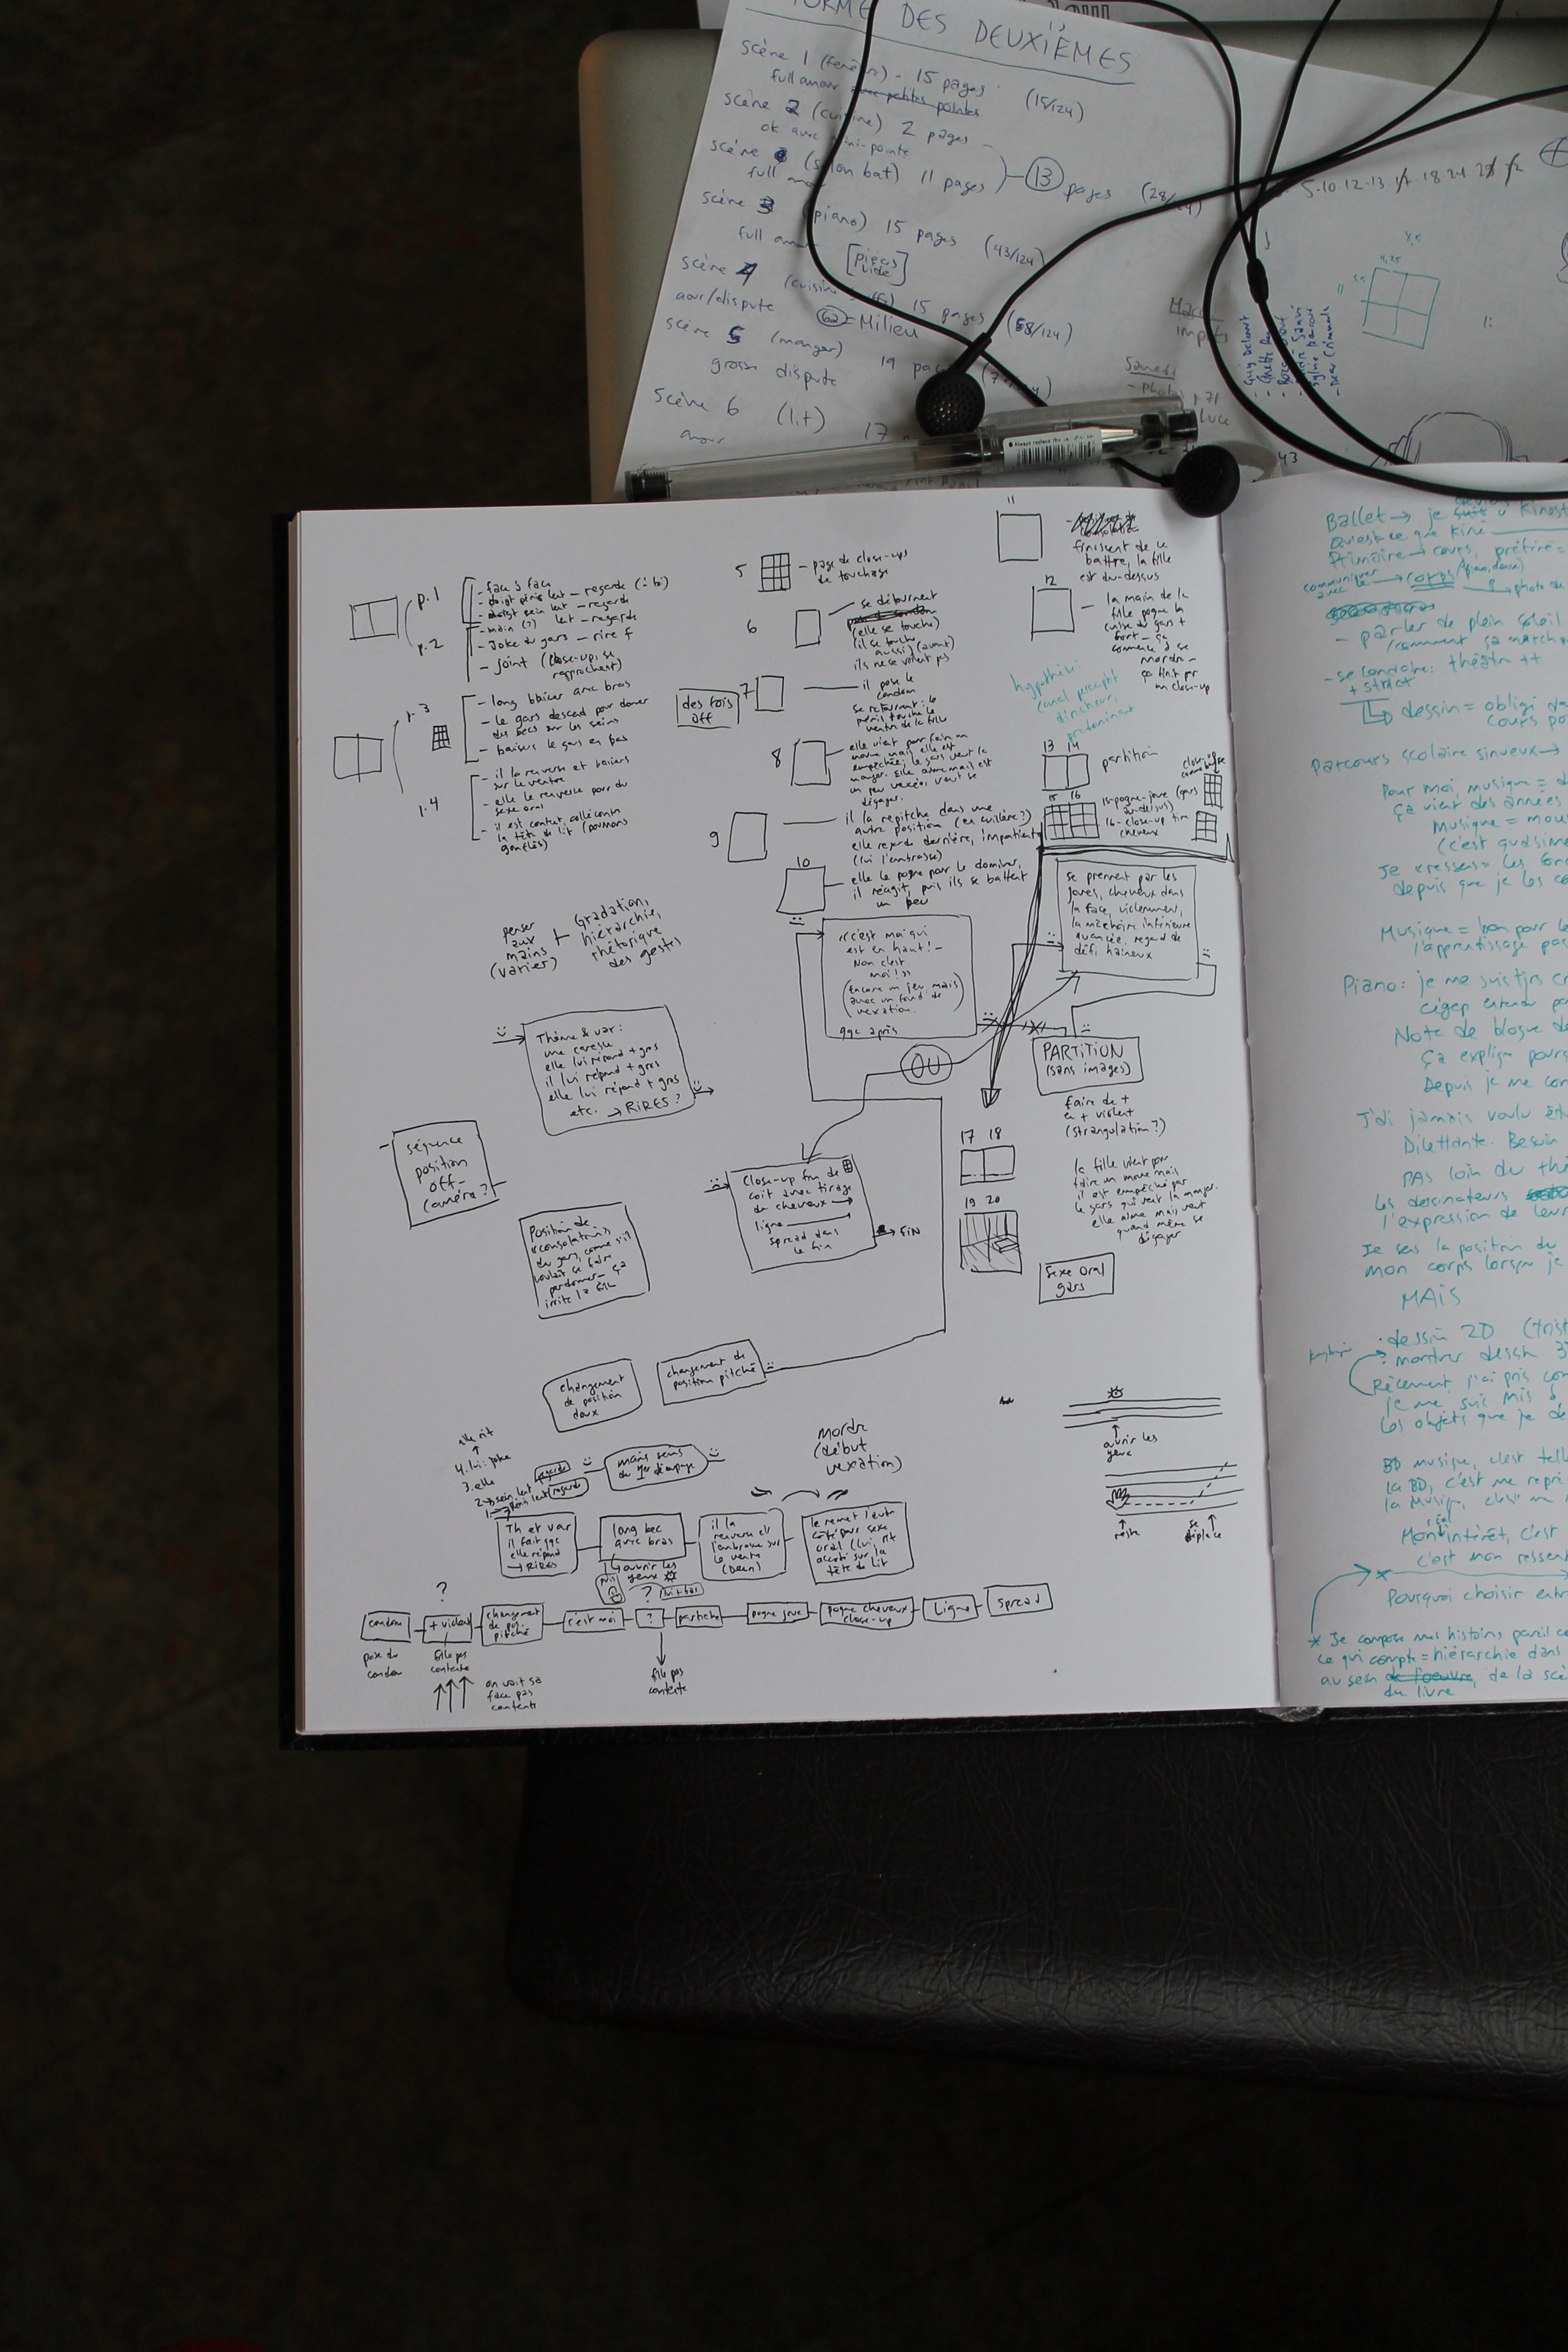 FORME DES DEUXIÈMES
scène 1 (fenêtre) - 15 pages. (15/124)
full amour avec petites pointes
scène 2 (cuisine) 2 pages -
ok avec mini-pointe
scène (salon bat) 11 pages )-(13) pages (28/124)
full amour
scène 3 (piano) 15 pages (43/124)
full amour [pièces vide]
scène 4 (cuisine 15 pages (58/124)
amour/dispute (62)=Milieu
scène 5 (manger) 19 pages
grosse dispute
scène 6 (lit) 17
amour
5-10-12-13
Samedi
- photos p.71
43
Always replace the
p.1
- face à face
- doigt pénis lent - regarde
- doigt sein lent - regarde
p.2
- main (?) lent - regarde
- Joke du gars - rire f
- joint (close-up, se
rapprochent)
p.3
- long baiser avec bras
- le gars descend pour donner
des becs sur les seins
- baisers le gars en bas
p.4
- il la renverse et baisers
sur le ventre
- elle le renverse pour du
sexe oral
- il est content, collé contre
la tête de lit (poumons
gonflés)
5
- page de close-ups
de touchage
6
se détournent
(elle se touche)
(il se touche
aussi) (avant)
ils ne se voient pas
des fois
off
7
il pose le
condom
se retournant : le
pénis touche le
ventre de la fille
8
elle vient pour faire un
move mais elle est
empêchée, le gars veut la
manger. Elle aime mais est
un peu vexée, veut se
dégager.
9
il la repitche dans une
autre position (en cuillère?)
elle regarde derrière, impatiente
(lui l'embrasse)
10
elle le pogne pour le dominer,
il réagit, puis ils se battent
un peu
11
finissent de se
battre, la fille
est au-dessus
12
- la main de la
fille pogne la
cuisse du gars +
fort - ça
commence à se
mordre -
ça finit par
un close-up
hypothèse:
canal perceptif
directeur,
prédominant
13 14
partition
15 16
15-pogne-joue (gars
au-dessus)
16- close-up tire
cheveux
penser
aux
mains
(varier)
Gradation,
hiérarchie,
rhétorique
des gestes
«c'est moi qui
est en haut! -
Non c'est
moi!»
(encore un jeu, mais
avec un fond de
vexation.
qqc après
se prennent par les
joues, cheveux dans
la face, violemment,
la mâchoire inférieure
avancée, regard de
défi haineux
Thème & var:
une caresse
elle lui répond + gros
il lui répond + gros
elle lui répond + gros
etc. → RIRES?
OU
PARTITION
(sans images)
faire de +
en + violent
(strangulation?)
- séquence
position
off-
caméra?
Close-up fin de
coït avec tirage
de cheveux →
ligne
spread dans
le fin
→ FIN
Position de
«consolation»
du gars, comme s'il
voulait se faire
pardonner - ça
irrite la fille
17 18
la fille vient pour
faire un move mais
il est empêché par
le gars qui veut la manger.
elle aime mais veut
quand même se
dégager
19 20
sexe oral
gars
changement
de position
doux
changement de
position pitché
mordre
(début
vexation)
elle rit
↑
4. lui: joke
3. elle
2→ sein lent regarde
1→ pénis lent regarde
mais seins
du 1er découpage
ouvrir les
yeux
reste
se
déplace
Th et var
il fait qqc
elle répond
→ RIRES
long bec
avec bras
ouvrir les
yeux
il la
renverse et
l'embrasse sur
le ventre
(Dean)
le remet l'autre
côté pour sexe
oral (lui rit
accoté sur la
tête de lit
?
condom
+ violent
changement
de pos.
pitché
c'est moi
?
partiche
pogne joue
pogne cheveux
close-up
Ligne
Spread
pose du
condom
fille pas
contente
↑↑↑
on voit sa
face pas
contente
fille pas
contente
Ballet → je suis
Qu'est-ce que kiné
Primaire → cours, préféré =
communiquer
avec → corps
- parler de plein soleil
/comment ça march
- secondaire: théâtre ++
+ strict
dessin = obligé
cours po
Parcours scolaire sinueux →
Pour moi, musique =
Ça vient des années
Musique = mou
(c'est quasime
Je «ressens» les
depuis que je les co
Musique = bon pour le
l'apprentissage pa
Piano: je me suis tjrs
cégep
Note de blogue de
Ça explique pourq
Depuis je me co
J'ai jamais voulu êt
Dilettante. Besoin
PAS loin du thé
les dessinateurs
l'expression de leur
Je sens la position du
mon corps lorsque je
MAIS
· dessin 2D
: montrer dessin 3
Récemment, j'ai pris con
je me suis mis à
les objets que je de
BD musique, c'est tell
la BD, c'est me repré
la Musique, c'est me
Mon intérêt, c'est
réel
c'est mon ressent
Pourquoi choisir entr
* Je compose mes histoires pareil co
ce qui compte = hiérarchie dans
au sein de l'oeuvre, de la scè
du livre